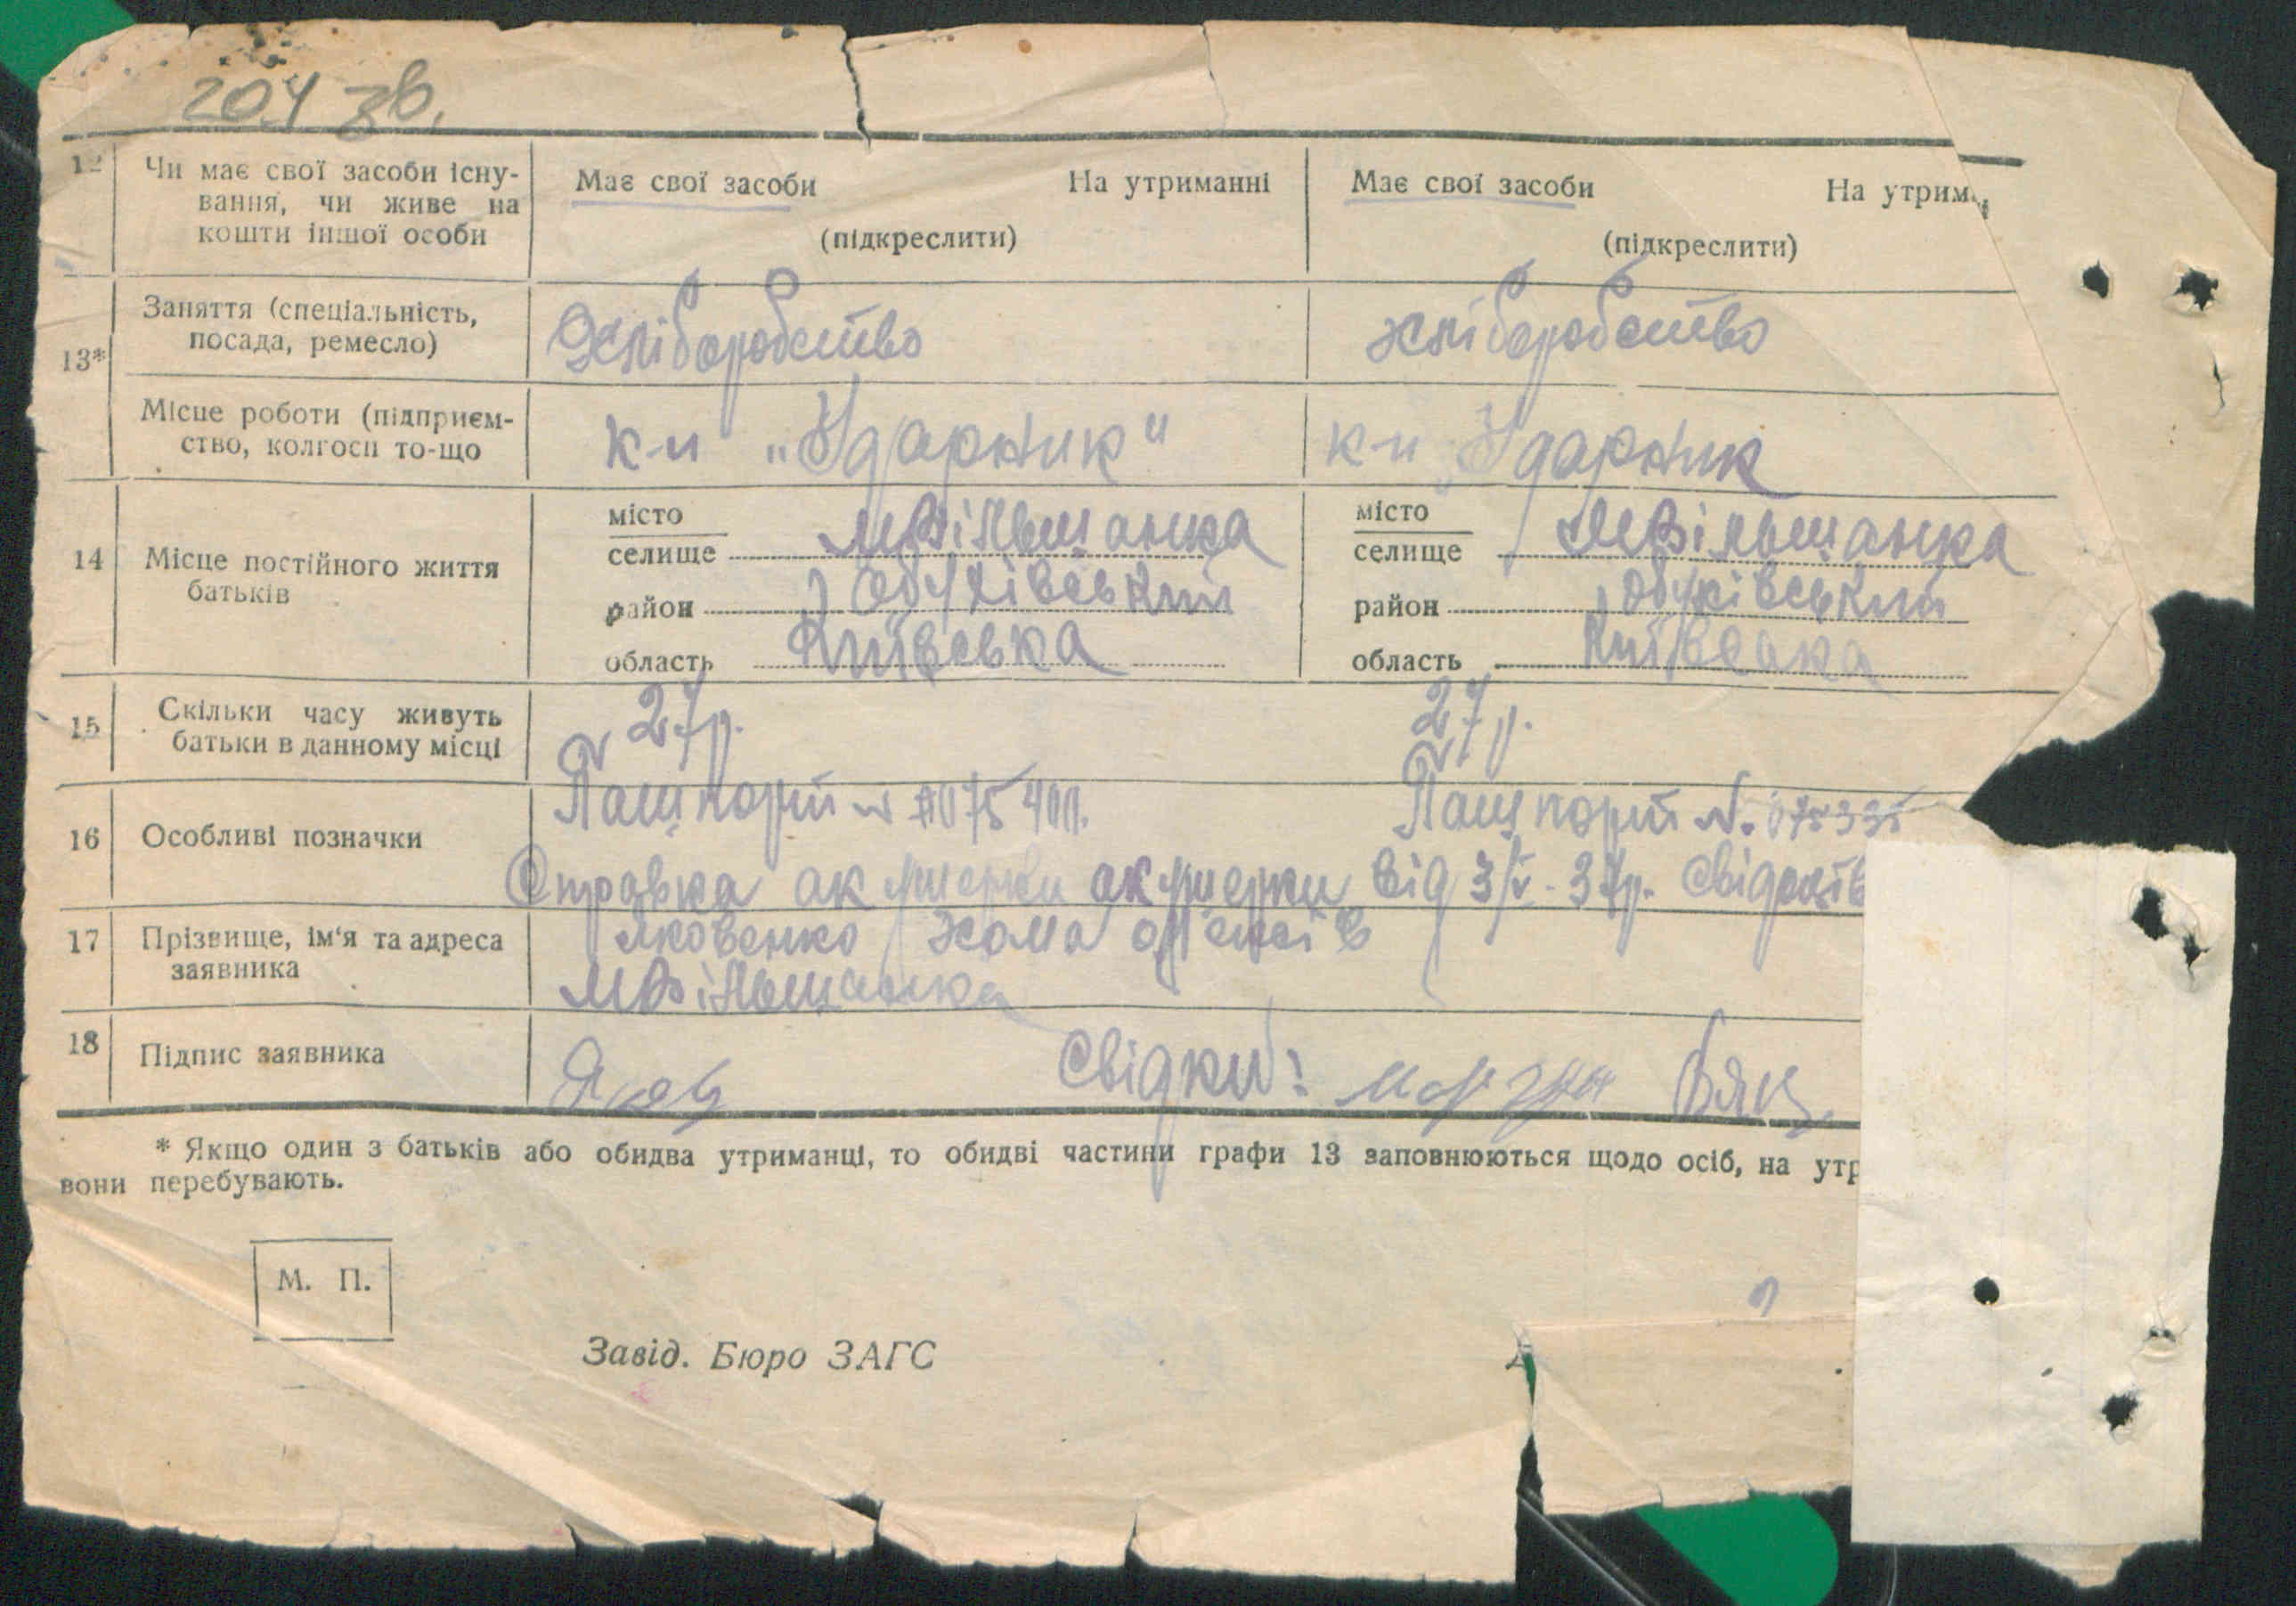 204 зв.
12 Чи має свої засоби існу- Має свої засоби На утриманні Має свої засоби На утрим
вання, чи живе на
кошти іншої особи (підкреслити) (підкреслити)
13* Заняття (спеціальність, Хліборобство Хліборобство
посада, ремесло)
Місце роботи (підприєм- к-п „Ударник" к-п „Ударник
ство, колгосп то-що
14 Місце постійного життя місто МВільшанка місто МВільшанка
батьків селище селище
район Обухівський район Обухівський
область Київська область Київська
15 Скільки часу живуть 27р. 27р.
батьки в данному місці
16 Особливі позначки Пашпорт Пашпорт № 075335
Справка акушерки акушерки від 3/V-37р.
17 Прізвище, ім'я та адреса Яковенко Хома
заявника МВільшанка
18 Підпис заявника Яков Свідки:
* Якщо один з батьків або обидва утриманці, то обидві частини графи 13 заповнюються щодо осіб, на утр
вони перебувають.
М. П.
Завід. Бюро ЗАГС